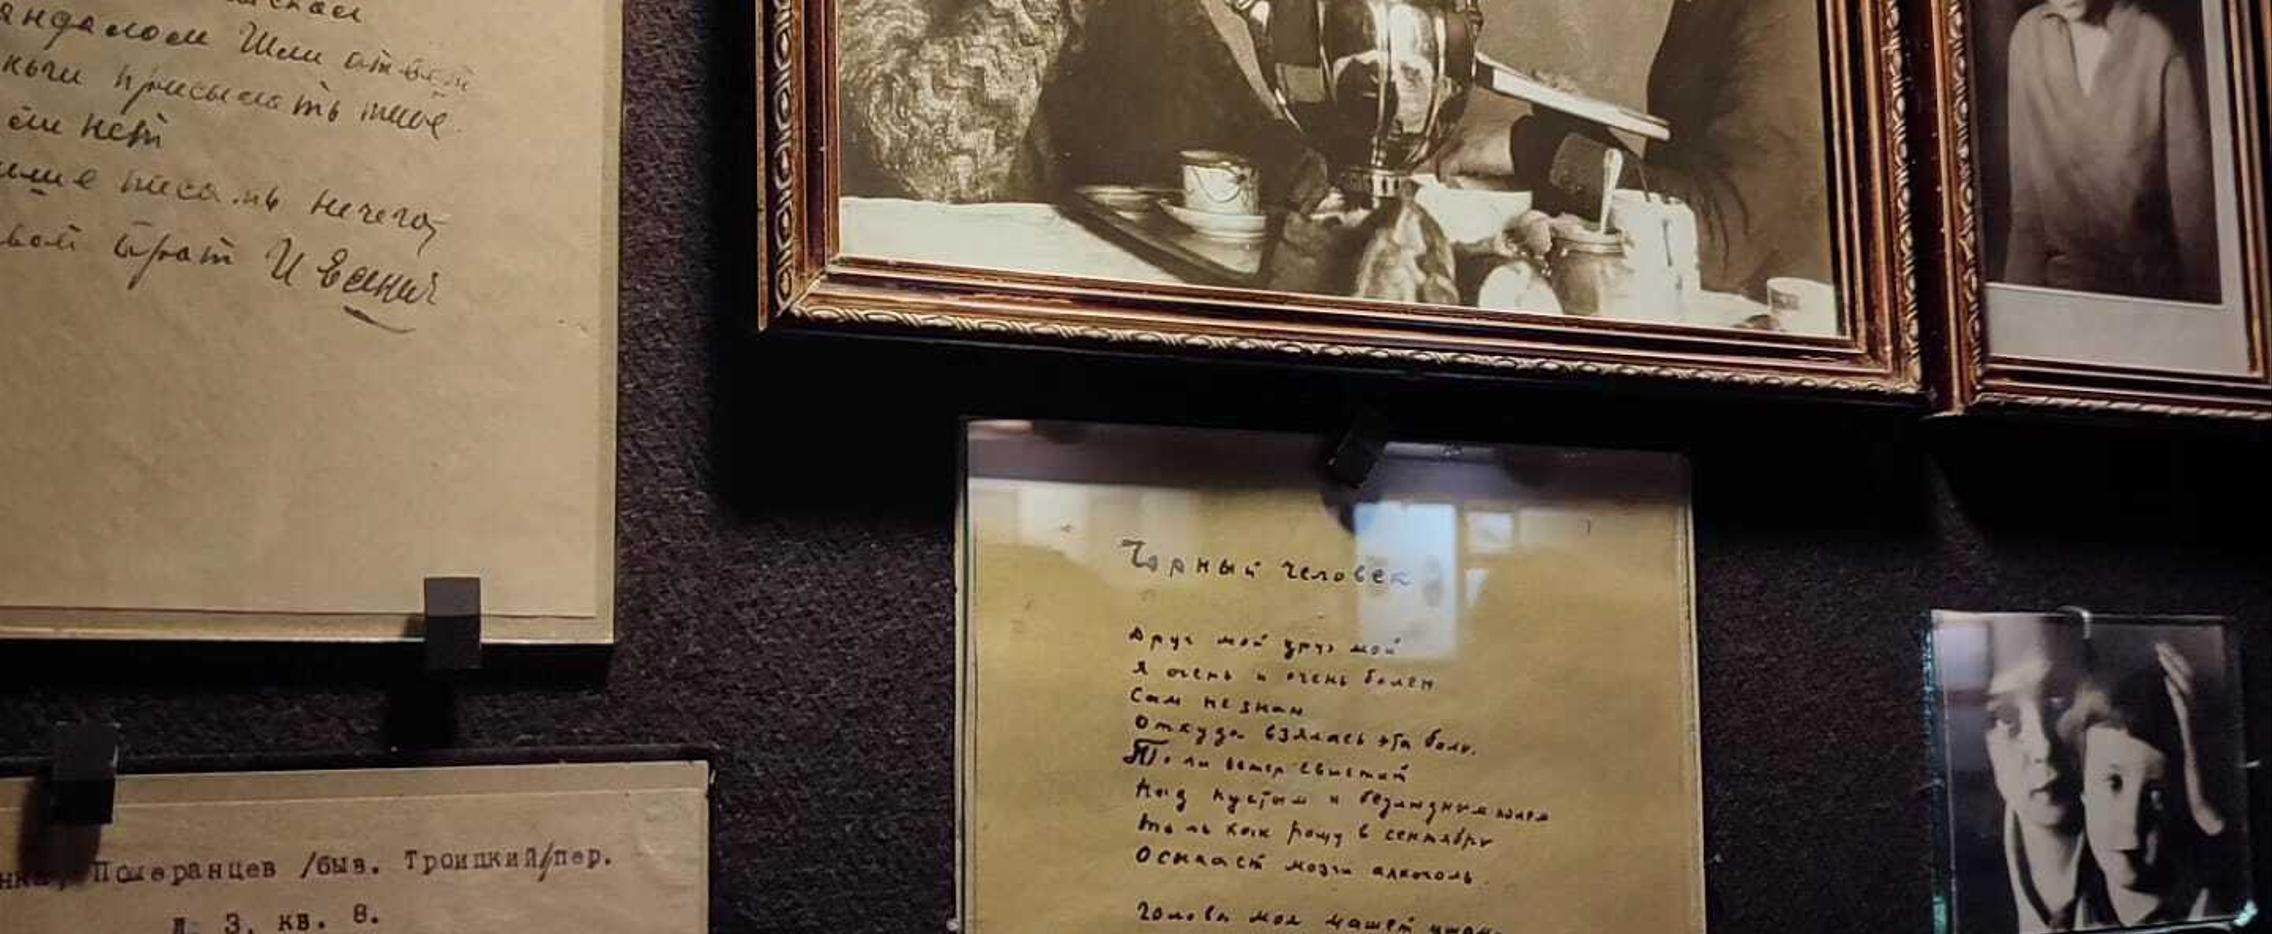 Шли ответ
присылать мне
или нет
писать нечего
твой брат И Есенин
Померанцев /быв. Троицкий/пер.
д. 3. кв. 8.
Чорный человек
Друг мой друг мой
Я очень и очень болен
Сам не знаю
Откуда взялась эта боль.
То ли ветер свистит
Над пустым и безлюдным полем
То ль как рощу в сентябрь
Осыпает мозги алкоголь.
Голова моя машет ушами